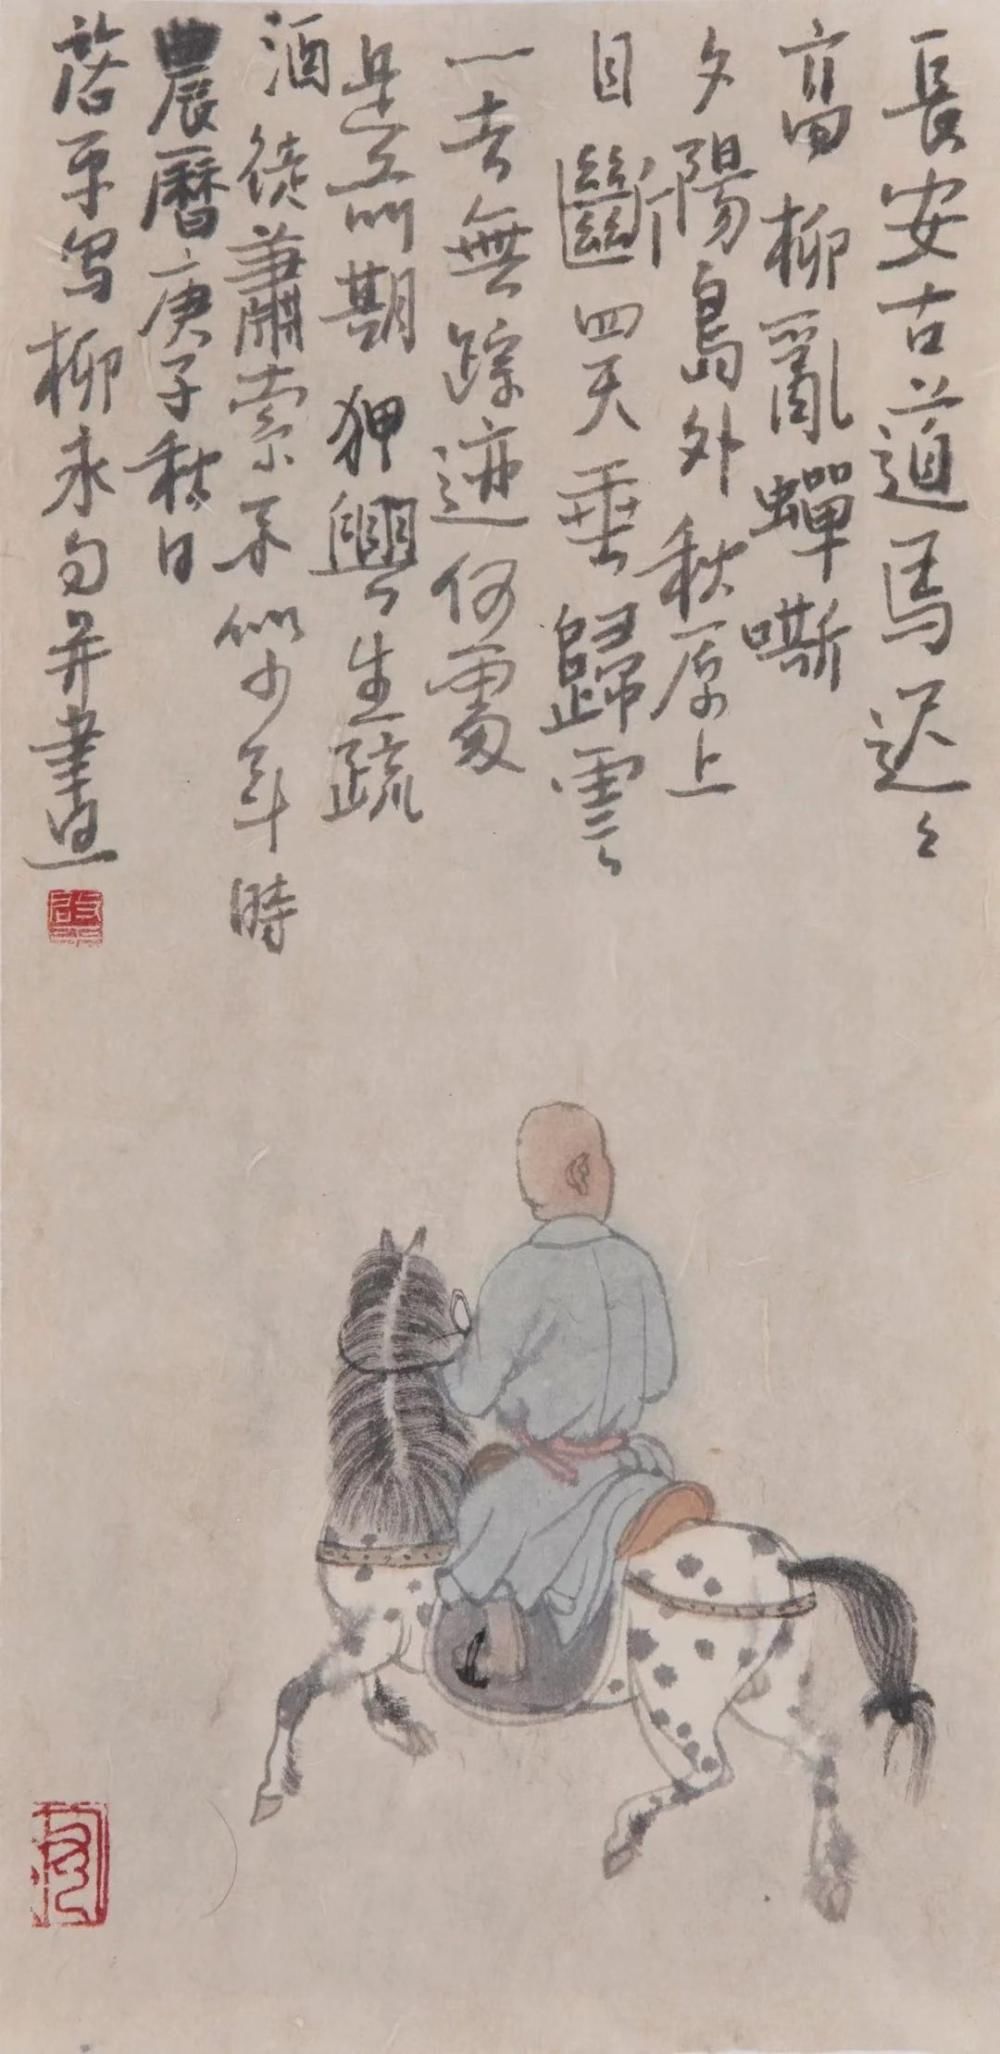 長安古道馬迟々
高柳亂蟬嘶
夕陽島外秋原上
目斷四天垂歸雲
一去無踪迹何處
是前期狎興生疏
酒徒蕭索不似少年時
農曆庚子秋日
啓平写柳永句并畫